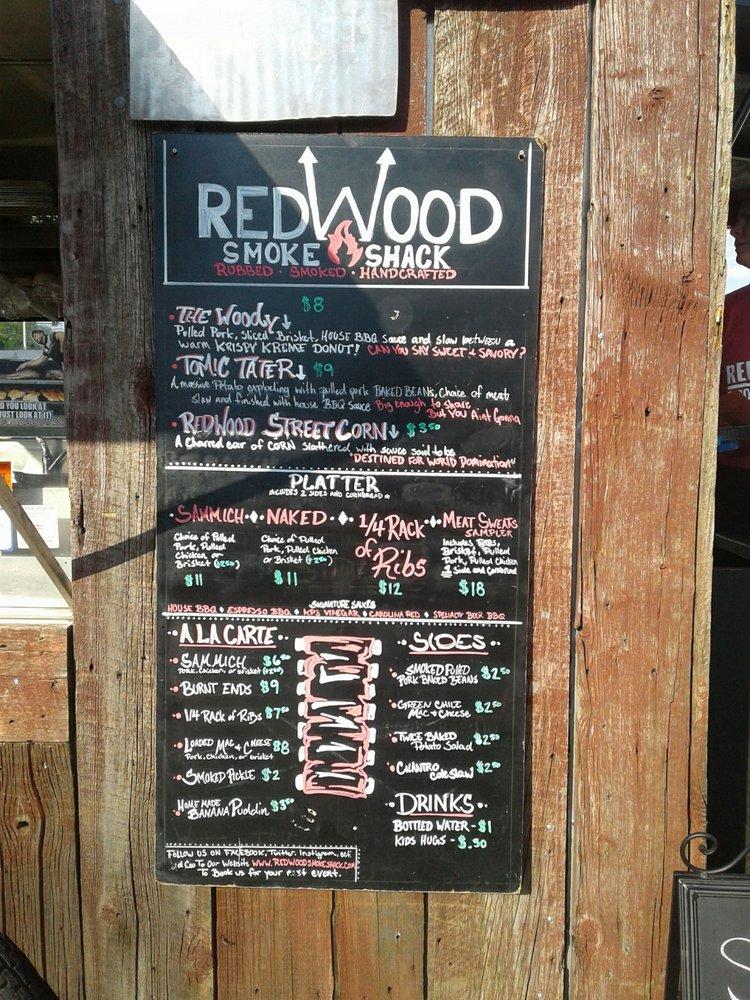 REDWOOD
SMOKE SHACK
RUBBED · SMOKED · HANDCRAFTED
$8
• THE WOODY ↓
Pulled Pork, Sliced Brisket, HOUSE BBQ Sauce and slaw between a
warm KRISPY KREME DONUT! CAN YOU SAY SWEET & SAVORY?
• TOMIC TATER ↓ $9
A massive Potato exploding with pulled pork BAKED BEANS, choice of meat
Slaw and finished with house BBQ Sauce Big enough to share
But YOU Ain't Gonna
• REDWOOD STREET CORN ↓ $3.50
A charred ear of CORN slathered with sauce said to be
"DESTINED FOR WORLD Domination"
PLATTER
INCLUDES 2 SIDES AND CORNBREAD
• SAMMICH
Choice of Pulled
Pork, Pulled
Chicken or
Brisket (+$2.50)
$11
• NAKED
Choice of Pulled
Pork, Pulled Chicken
or Brisket (+$2.50)
$11
1/4 RACK
of Ribs
$12
MEAT SWEATS
SAMPLER
Includes Ribs,
Brisket, Pulled
Pork, Pulled Chicken
Side and Cornbread
$18
SIGNATURE SAUCES
HOUSE BBQ ♦ ESPRESSO BBQ ♦ KP'S VINEGAR ♦ CAROLINA RED ♦ SPECIALTY BEER BBQ
• A LA CARTE •
• SAMMICH $6.50
Pork, chicken, or brisket (+$2.50)
• BURNT ENDS $9
• 1/4 RACK of RIBS $7.50
• LOADED MAC & CHEESE $8
Pork, chicken, or brisket
• SMOKED PICKLE $2
• HOME MADE
BANANA Puddin $3.50
• SIDES •
• SMOKED PULLED
PORK BAKED BEANS $2.50
• GREEN CHILE
MAC & Cheese $2.50
• TWICE BAKED
Potato Salad $2.50
• CILANTRO
cole slaw $2.50
• DRINKS •
BOTTLED WATER - $1
KIDS HUGS - $.50
FOLLOW US ON FACEBOOK, Twitter, Instigram, ect.
Goo To Our Website WWW.REDWOODSMOKESHACK.COM
To Book us for your next event.
D YOU LOOK AT
JUST LOOK AT IT!
RE